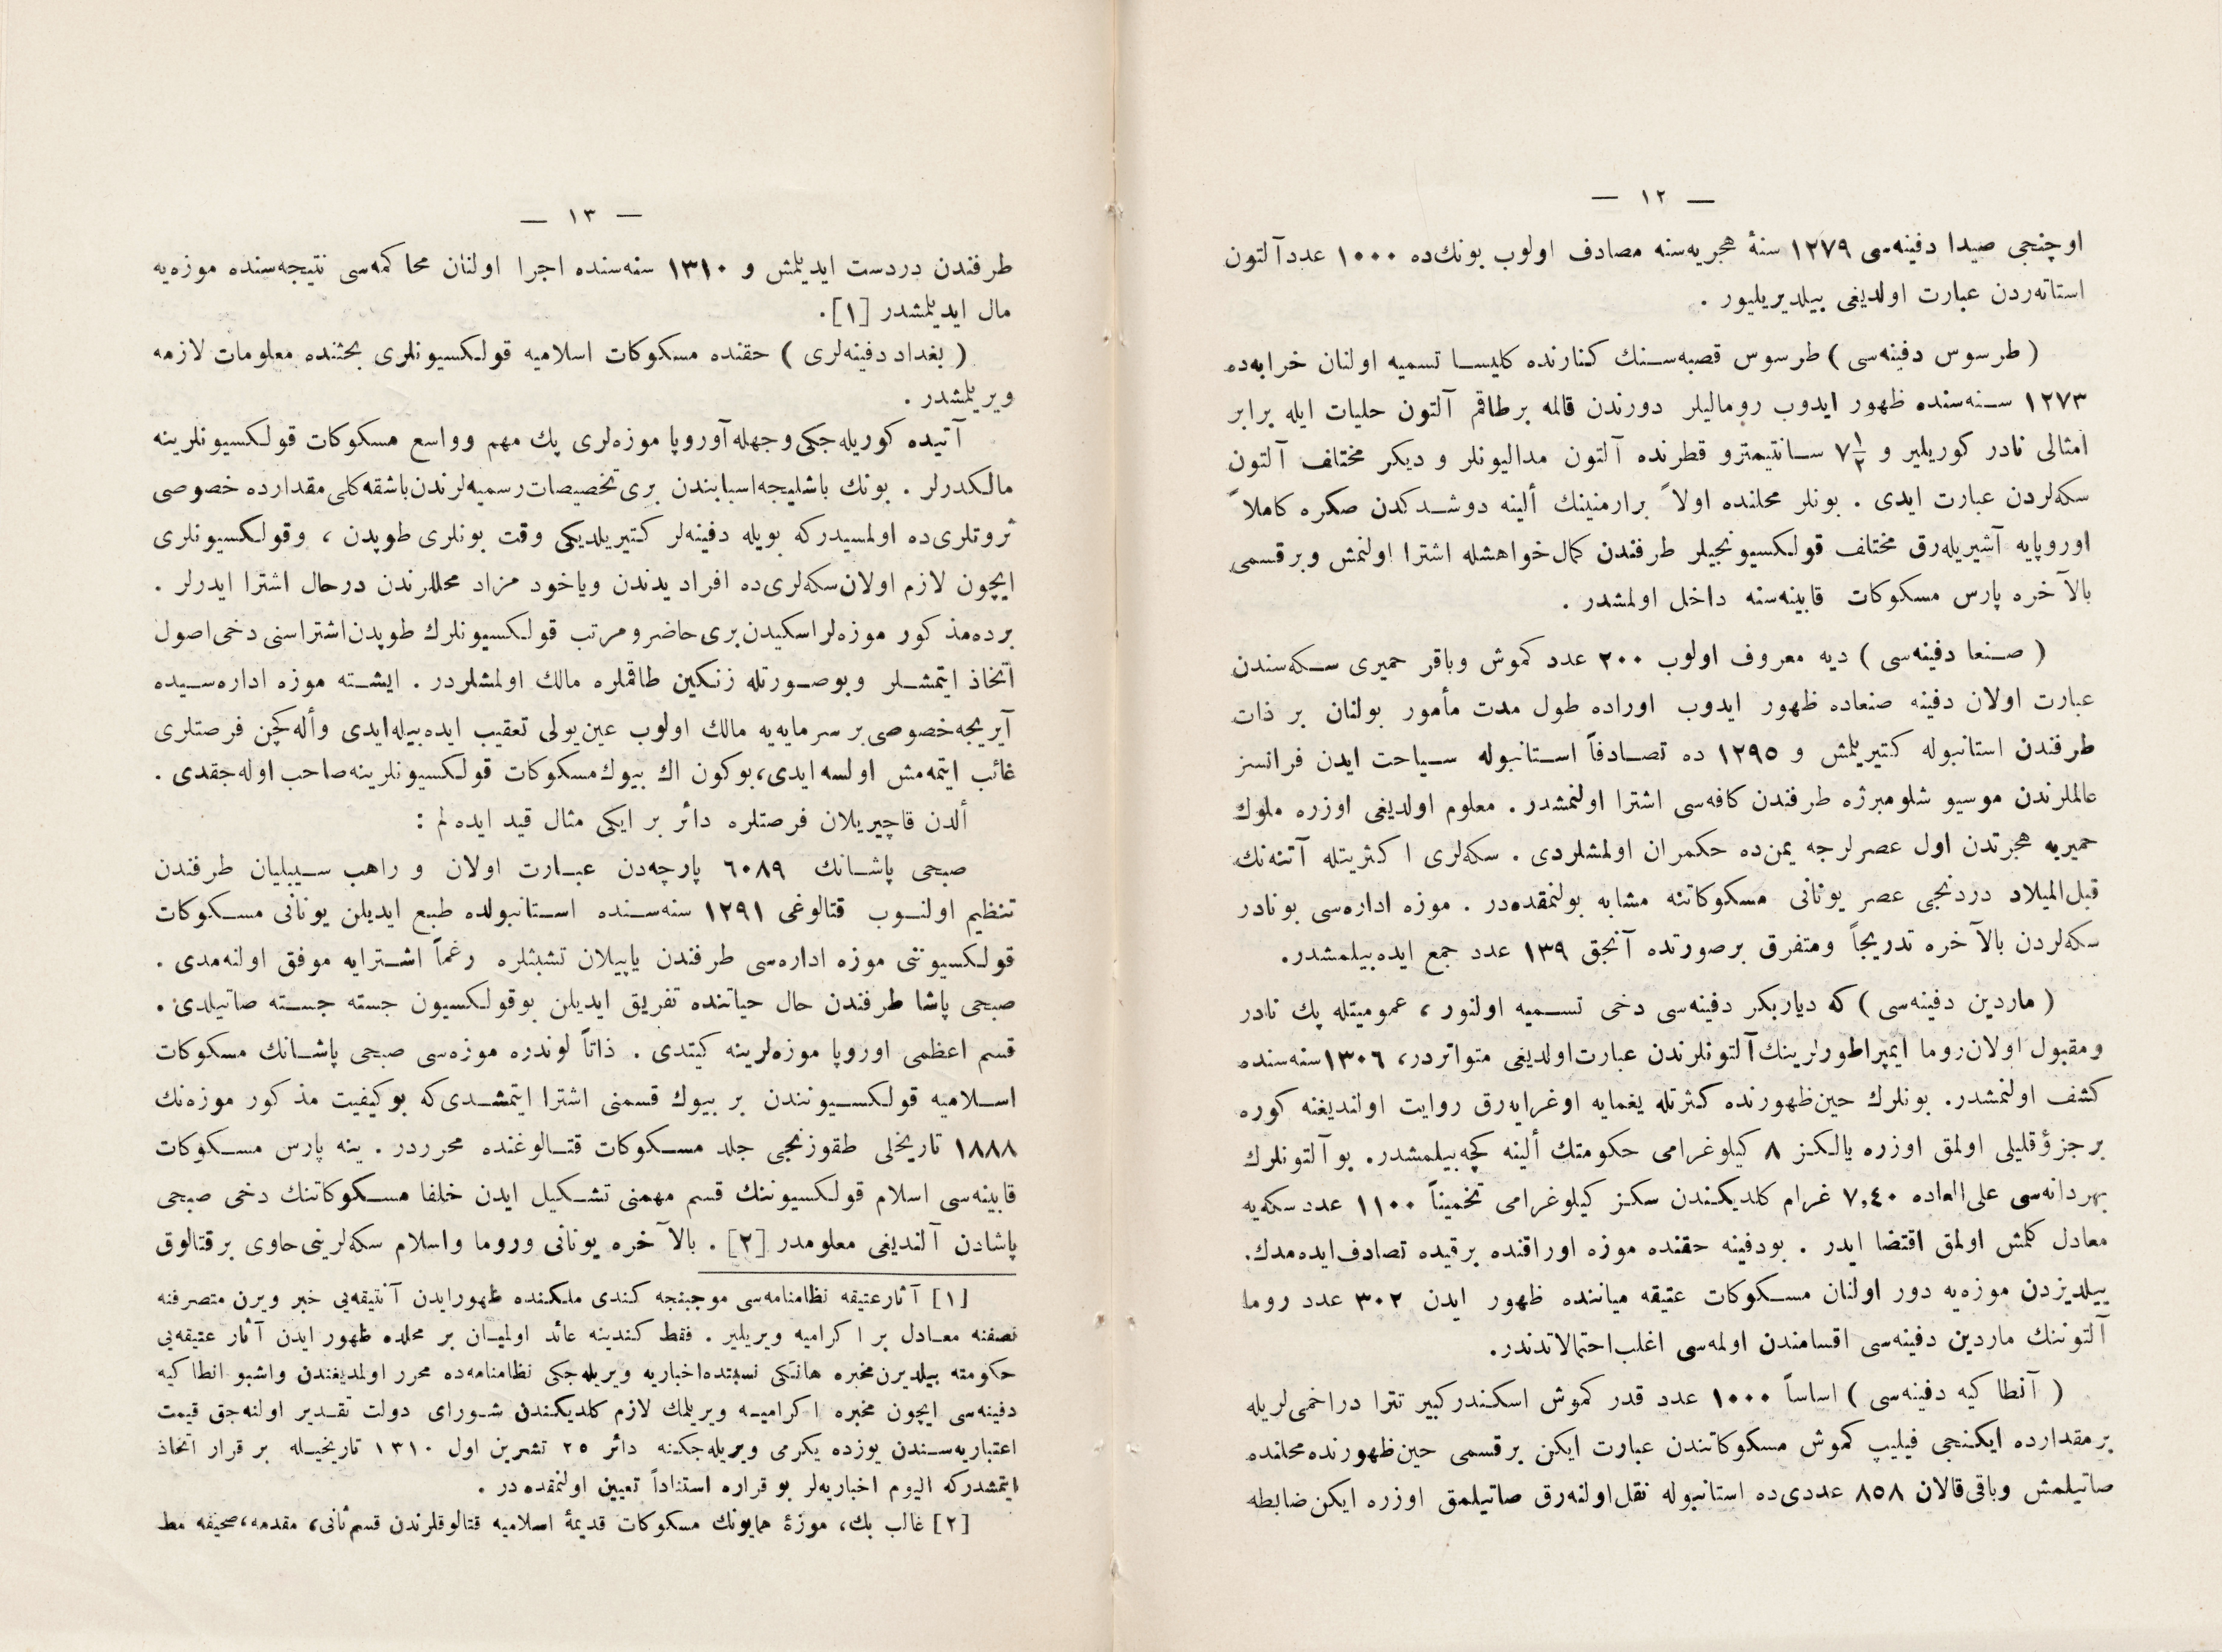 — ١٢ —
اوچنجی صیدا دفینه‌سی ١٢٧٩ سنهٔ هجریه‌سنه مصادف اولوب بونك‌ده ١٠٠٠ عدد آلتون
استاته‌ردن عبارت اولدیغی بیلدیریلیور .
( طرسوس دفینه‌سی ) طرسوس قصبه‌سنك كنارنده كلیسا تسمیه اولنان خرابه‌ده
١٢٧٣ سنه‌سنده ظهور ایدوب رومالیلر دورندن قالمه برطاقم آلتون حلیات ایله برابر
امثالی نادر كوریلیر و ٧١⁄٢ سانتیمترو قطرنده آلتون مدالیونلر و دیكر مختلف آلتون
سكه‌لردن عبارت ایدی . بونلر محلنده اولاً برارمنینك ألینه دوشدكدن صكره كاملاً
اوروپایه آشیریله‌رق مختلف قولكسیونجیلر طرفندن كمال‌خواهشله اشترا اولنمش وبرقسمی
بالآخره پارس مسكوكات قابینه‌سنه داخل اولمشدر .
( صنعا دفینه‌سی ) دیه معروف اولوب ٢٠٠ عدد كموش وباقر حمیری سكه‌سندن
عبارت اولان دفینه صنعاده ظهور ایدوب اوراده طول مدت مأمور بولنان بر ذات
طرفندن استانبوله كتیریلمش و ١٢٩٥ ده تصادفاً استانبوله سیاحت ایدن فرانسز
عالملرندن موسیو شلومبرژه طرفندن كافه‌سی اشترا اولنمشدر . معلوم اولدیغی اوزره ملوك
حمیریه هجرتدن اول عصرلرجه یمن‌ده حكمران اولمشلردی . سكه‌لری اكثریتله آتنه‌نك
قبل‌المیلاد دردنجی عصر یونانی مسكوكاتنه مشابه بولنمقده‌در . موزه اداره‌سی بونادر
سكه‌لردن بالآخره تدریجاً ومتفرق برصورتده آنجق ١٣٩ عدد جمع ایده‌بیلمشدر.
( ماردین دفینه‌سی ) كه دیاربكر دفینه‌سی دخی تسمیه اولنور ، عمومیتله پك نادر
ومقبول اولان‌روما ایمپراطورلرینك‌آلتونلرندن عبارت‌اولدیغی متواتردر، ١٣٠٦سنه‌سنده
كشف اولنمشدر. بونلرك حین‌ظهورنده كثرتله یغمایه اوغرایه‌رق روایت اولندیغنه كوره
برجزؤقلیلی اولمق اوزره یالكز ٨ كیلوغرامی حكومتك ألینه كچه‌بیلمشدر. بوآلتونلرك
بهردانه‌سی علی‌العاده ٧,٤٠ غرام كلدیكندن سكز كیلوغرامی تخمیناً ١١٠٠ عدد سكه‌یه
معادل كلمش اولمق اقتضا ایدر . بودفینه حقنده موزه اوراقنده برقیده تصادف‌ایده‌مدك.
ییلدیزدن موزه‌یه دور اولنان مسكوكات عتیقه میاننده ظهور ایدن ٣٠٢ عدد روما
آلتوننك ماردین دفینه‌سی اقسامندن اولمه‌سی اغلب‌احتمالاتدندر.
( آنطاكیه دفینه‌سی ) اساساً ١٠٠٠ عدد قدر كموش اسكندركبیر تترا دراخمی‌لریله
برمقدارده ایكنجی فیلیپ كموش مسكوكاتندن عبارت ایكن برقسمی حین‌ظهورنده‌محلنده
صاتیلمش وباقی‌قالان ٨٥٨ عددی‌ده استانبوله نقل‌اولنه‌رق صاتیلمق اوزره ایكن‌ضابطه
— ١٣ —
طرفندن دردست ایدیلمش و ١٣١٠ سنه‌سنده اجرا اولنان محاكمه‌سی نتیجه‌سنده موزه‌یه
مال ایدیلمشدر [١].
( بغداد دفینه‌لری ) حقنده مسكوكات اسلامیه قولكسیونلری بحثنده معلومات لازمه
ویریلمشدر .
آتیده كوریله‌جكی‌وجهله‌آوروپا موزه‌لری پك مهم وواسع مسكوكات قولكسیونلرینه
مالكدرلر . بونك باشلیجه‌اسبابندن بری‌تخصیصات‌رسمیه‌لرندن‌باشقه‌كلی‌مقدارده خصوصی
ثروتلری‌ده اولمسیدركه بویله دفینه‌لر كتیریلدیكی وقت بونلری طوپدن ، وقولكسیونلری
ایچون لازم اولان‌سكه‌لری‌ده افراد یدندن ویاخود مزاد محللرندن درحال اشترا ایدرلر .
برده‌مذكور موزه‌لراسكیدن‌بری‌حاضرومرتب قولكسیونلرك طوپدن‌اشتراسنی دخی‌اصول
اتخاذ ایتمشلر وبوصورتله زنكین طاقملره مالك اولمشلردر . ایشته موزه اداره‌سیده
آیریجه‌خصوصی‌بر سرمایه‌یه مالك اولوب عین‌یولی تعقیب ایده‌بیله‌ایدی وأله‌كچن فرصتلری
غائب ایتمه‌مش اولسه ایدی،بوكون اك بیوك‌مسكوكات قولكسیونلرینه‌صاحب اوله‌جقدی .
ألدن قاچیریلان فرصتلره دائر بر ایكی مثال قید ایده‌لم :
صبحی پاشانك ٦٠٨٩ پارچه‌دن عبارت اولان و راهب سیبلیان طرفندن
تنظیم اولنوب قتالوغی ١٢٩١ سنه‌سنده استانبولده طبع ایدیلن یونانی مسكوكات
قولكسیوننی موزه اداره‌سی طرفندن یاپیلان تشبثلره رغماً اشترایه موفق اولنه‌مدی .
صبحی پاشا طرفندن حال حیاتنده تفریق ایدیلن بوقولكسیون جسته جسته صاتیلدی .
قسم اعظمی اوروپا موزه‌لرینه كیتدی . ذاتاً لوندره موزه‌سی صبحی پاشانك مسكوكات
اسلامیه قولكسیونندن بر بیوك قسمنی اشترا ایتمشدی‌كه بوكیفیت مذكور موزه‌نك
١٨٨٨ تاریخلی طقوزنجی جلد مسكوكات قتالوغنده محرردر . ینه پارس مسكوكات
قابینه‌سی اسلام قولكسیوننك قسم مهمنی تشكیل ایدن خلفا مسكوكاتنك دخی صبحی
پاشادن آلندیغی معلومدر [٢] . بالآخره یونانی وروما واسلام سكه‌لرینی‌حاوی برقتالوق
[١] آثارعتیقه نظامنامه‌سی موجبنجه كندی ملكنده ظهورایدن آنتیقه‌یی خبر ویرن متصرفنه
نصفنه معادل بر اكرامیه ویریلیر . فقط كندینه عائد اولمیان بر محلده ظهور ایدن آثار عتیقه‌یی
حكومته بیلدیرن‌مخبره هانكی نسبتده‌اخباریه ویریله‌جكی نظامنامه‌ده محرر اولمدیغندن واشبو انطاكیه
دفینه‌سی ایچون مخبره اكرامیه ویریلمك لازم كلدیكندن شورای دولت تقدیر اولنه‌جق قیمت
اعتباریه‌سندن یوزده یكرمی ویریله‌جكنه دائر ٢٥ تشرین اول ١٣١٠ تاریخیله بر قرار اتخاذ
ایتمشدركه الیوم اخباریه‌لر بو قراره استناداً تعیین اولنمقده‌در .
[٢] غالب بك، موزهٔ همایونك مسكوكات قدیمهٔ اسلامیه قتالوقلرندن قسم‌ثانی، مقدمه،صحیفه مط